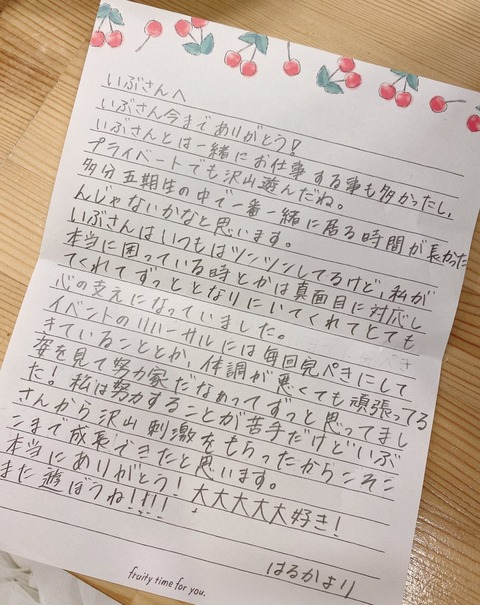 いぶさんへ
いぶさん今までありがとう!
いぶさんとは一緒にお仕事する事も多かったし、
プライベートでも沢山遊んだね。
多分五期生の中で一番一緒に居る時間が長かった
んじゃないかなと思います。
いぶさんはいつもはツンツンしてるけど、私が
本当に困っている時とかは真面目に対応し
てくれてずっととなりにいてくれてとても
心の支えになっていました。
イベントのリハーサルには毎回完ぺきにして
きていることとか、体調が悪くても頑張ってる
姿を見て努力家だなぁってずっと思ってまし
た!私は努力することが苦手だけどいぶ
さんから沢山刺激をもらったからこそこ
こまで成長できたと思います。
本当にありがとう!大大大大大好き!
また遊ぼうね!!!
はるかより
fruity time for you.